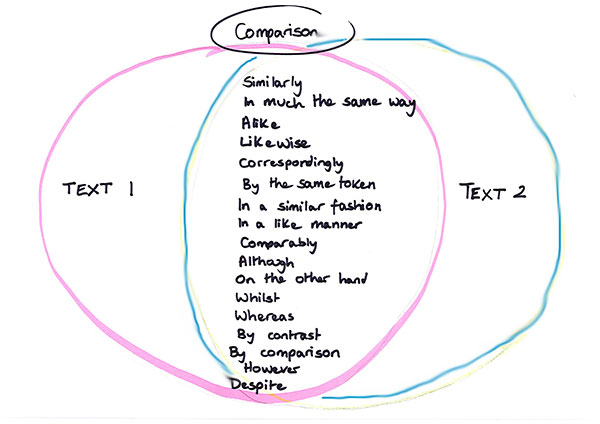 Comparison
Similarly
In much the same way
Alike
Likewise
Correspondingly
TEXT 1
By the same token
TEXT 2
In a similar fashion
In a like manner
Comparably
Although
On the other hand
Whilst
Whereas
By contrast
By comparison
However
Despite